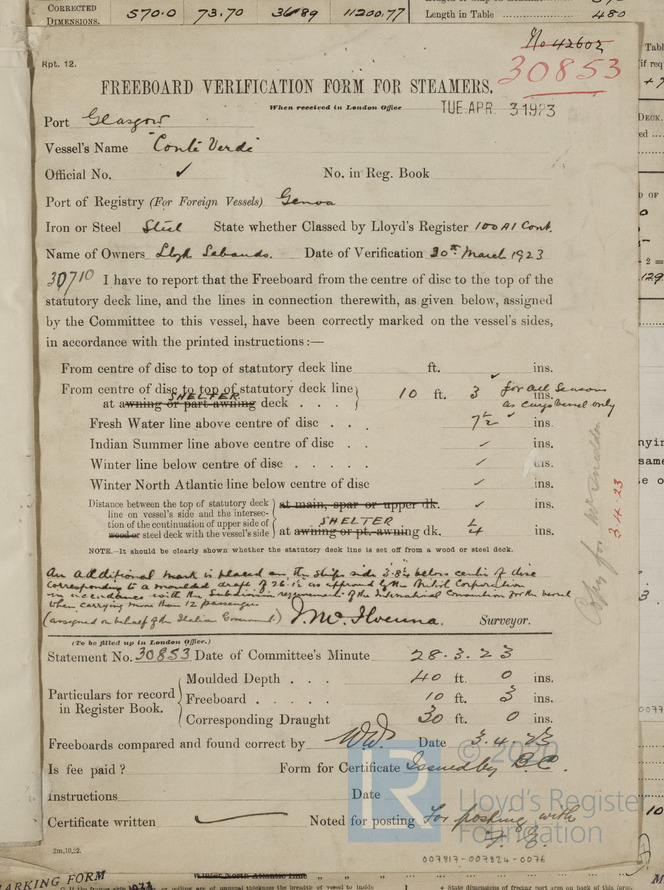 CORRECTED
DIMENSIONS. 570.0 73.70 36.89 11200.77
Length in Table 480
No 42602
Rpt. 12. 30853
FREEBOARD VERIFICATION FORM FOR STEAMERS.
When received in London Office TUE. APR. 3 1923
Port Glasgow
Vessel's Name "Conte Verde"
Official No. ✓ No. in Reg. Book
Port of Registry (For Foreign Vessels) Genoa
Iron or Steel Steel State whether Classed by Lloyd's Register 100 A1 Cont.
Name of Owners Lloyd Sabaudo. Date of Verification 30th March 1923
30710 I have to report that the Freeboard from the centre of disc to the top of the
statutory deck line, and the lines in connection therewith, as given below, assigned
by the Committee to this vessel, have been correctly marked on the vessel's sides,
in accordance with the printed instructions:—
From centre of disc to top of statutory deck line ft. ✓ ins.
From centre of disc to top of statutory deck line
SHELTER
at awning or part awning deck . . . 10 ft. 3 ins. for all Seasons
as cargo vessel only
Fresh Water line above centre of disc . . . 7½ ✓ ins.
Indian Summer line above centre of disc . ✓ ins.
Winter line below centre of disc . . . . . ✓ ins.
Winter North Atlantic line below centre of disc ✓ ins.
Distance between the top of statutory deck
line on vessel's side and the intersec-
tion of the continuation of upper side of
wood or steel deck with the vessel's side
at main, spar or upper dk. ✓ ins.
SHELTER
at awning or pt. awning dk. ¼ ins.
NOTE.—It should be clearly shown whether the statutory deck line is set off from a wood or steel deck.
An additional mark is placed on the ships side 3.8½ below centre of disc
corresponding to a moulded draft of 26' as approved by the British Corporation
in accordance with the Subdivision requirements of the International Convention for the vessel
when carrying more than 12 passengers
(assigned on behalf of the Italian Government) Surveyor.
(To be filled up in London Office.)
Statement No. 30853 Date of Committee's Minute 28.3.23
Particulars for record
in Register Book.
Moulded Depth . . . 40 ft. 0 ins.
Freeboard . . . . . 10 ft. 3 ins.
Corresponding Draught 30 ft. 0 ins.
Freeboards compared and found correct by WW. Date 3.4.23
Is fee paid ? Form for Certificate Issued by B.C.
Instructions Date
Certificate written Noted for posting For posting with
2m,10,22.
Copy for
3.4.23
© 2020
LR
Lloyd's Register
Foundation
007917-007924-0076
ARKING FORM
Winter North Atlantic line